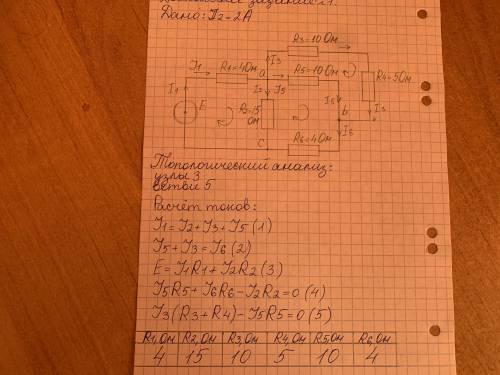 Дано: I2-2А
R3=10 Ом
I1 R1=4Ом a I3 R5=10Ом R4=5Ом
I1 E R2=15 Ом I2 I5 I5 b I3
I6
c R6=4Ом
Топологический анализ:
узлы 3
ветвей 5
Расчёт токов:
I1=I2+I3+I5(1)
I5+I3=I6(2)
E=I1R1+I2R2(3)
I5R5+I6R6-I2R2=0(4)
I3(R3+R4)-I5R5=0(5)
R1,Ом R2,Ом R3,Ом R4,Ом R5,Ом R6,Ом
4 15 10 5 10 4